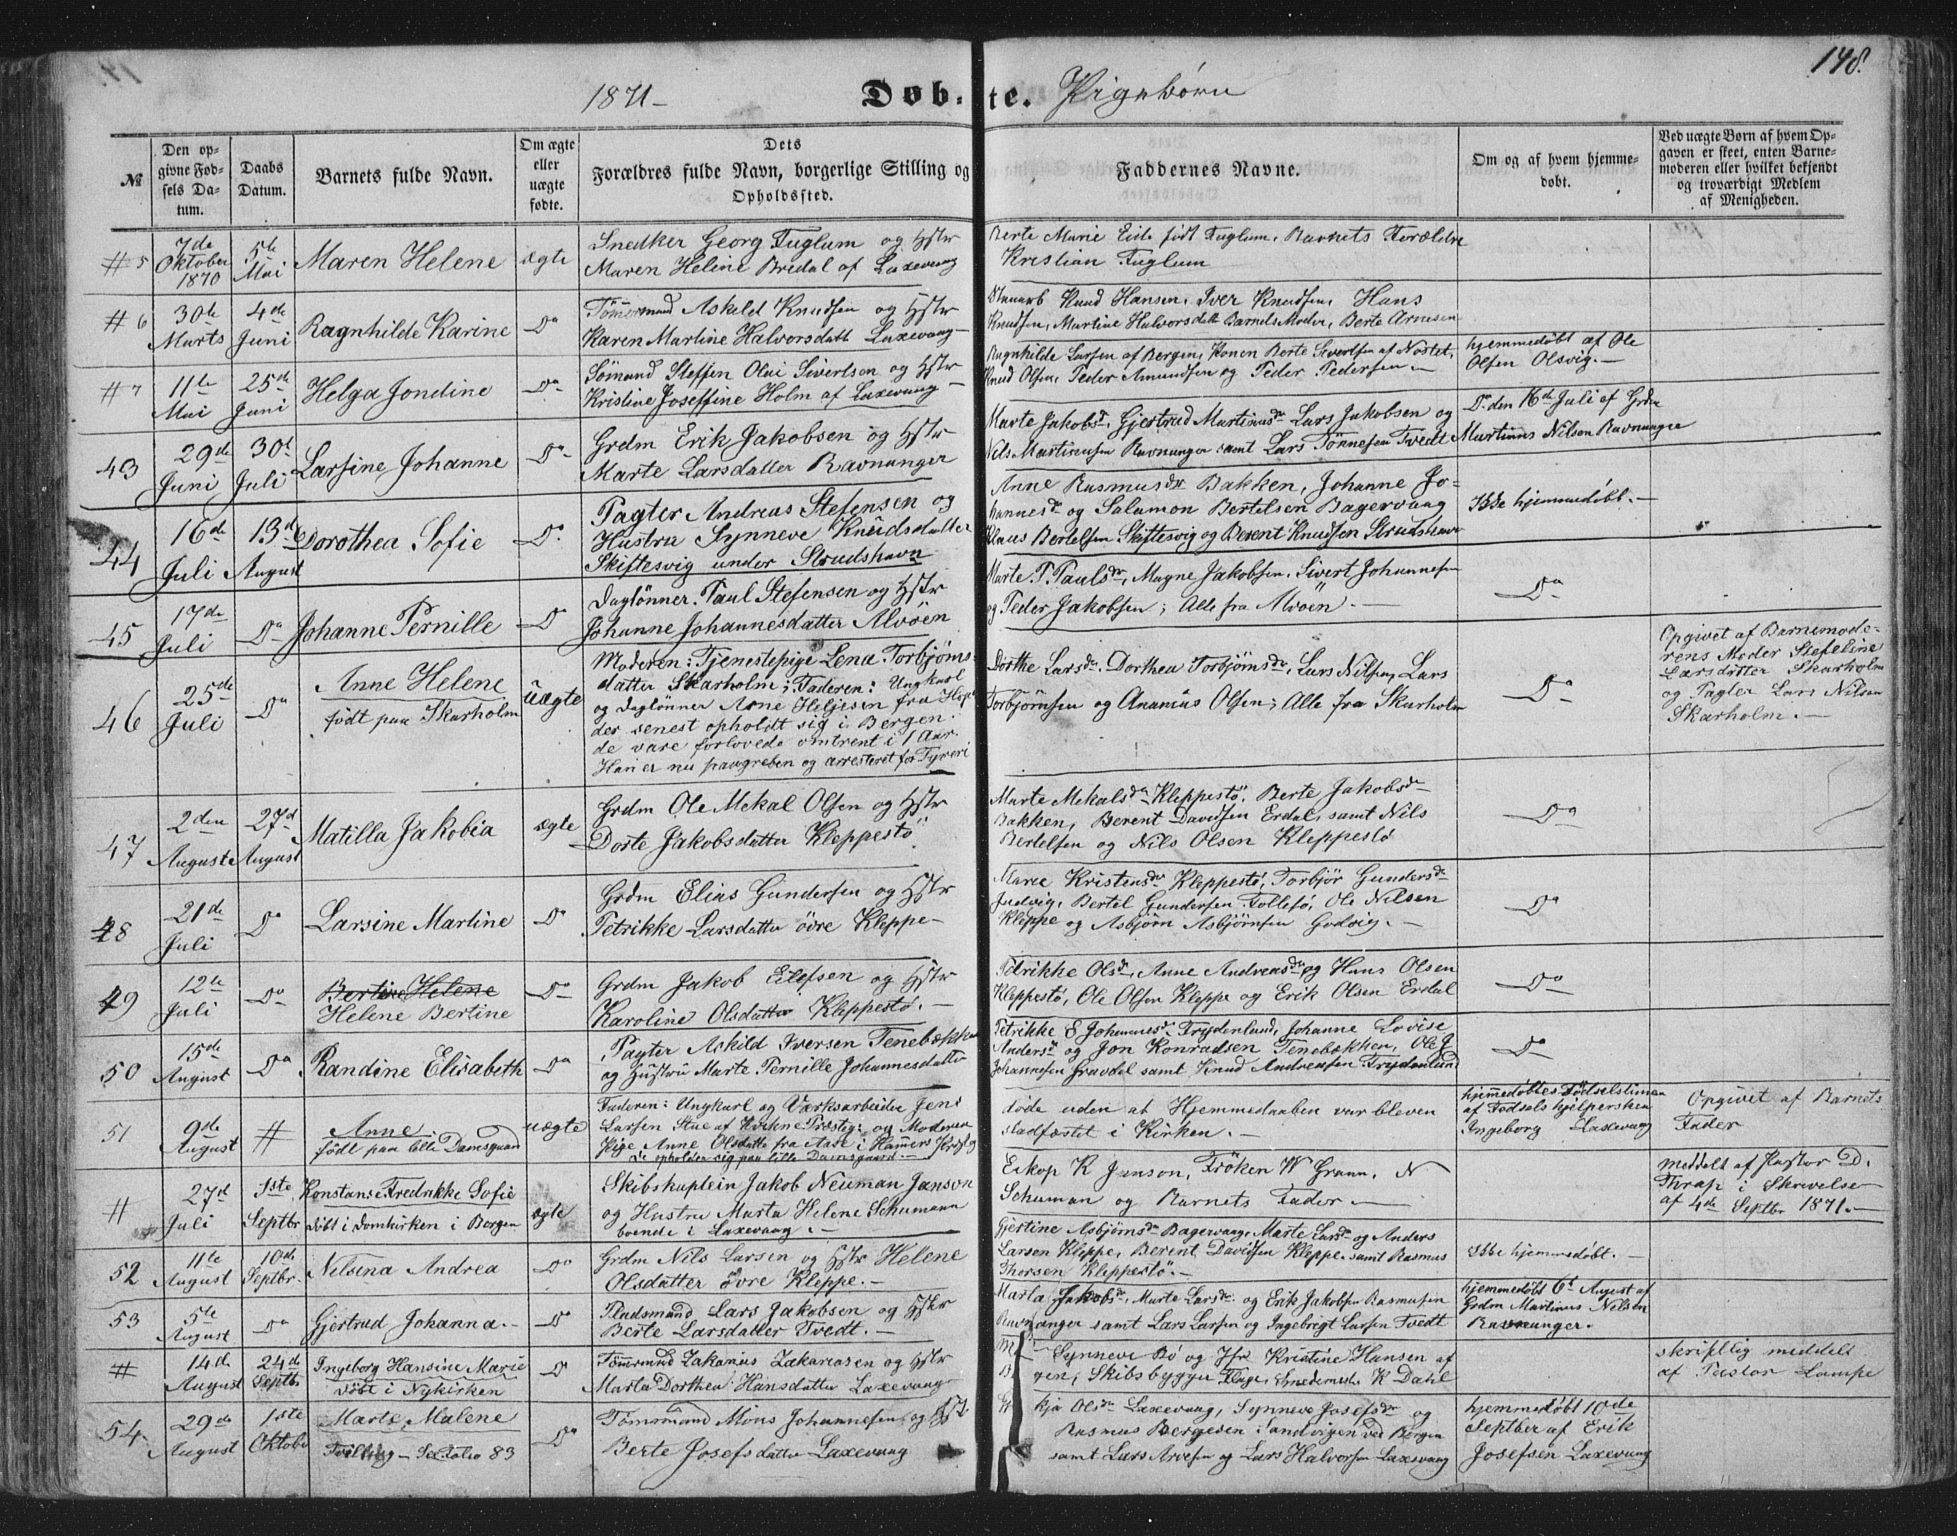 148.
1871- Døb-te. Pigebörn
№
Den opgivne Fødsels Datum.
Daabs Datum.
Barnets fulde Navn.
Om ægte eller uægte fødte.
Dets Forældres fulde Navn, borgerlige Stilling og Opholdssted.
Faddernes Navne.
Om og af hvem hjemmedøbt.
Ved uægte Børn af hvem Opgaven er skeet, enten Barnemoderen eller hvilket bekjendt og troværdigt Medlem af Menigheden.
#5 7de Oktober 1870 5te Mai Maren Helene ægte
Snedker Georg Fuglum og Hstr
Maren Heline Bredal af Laxevaag
Berte Marie Eide født Fuglum, Barnets Forældre
Kristian Fuglum
#6 30te Marts 4de Juni Ragnhilde Karine Do
Tömermand Askild Knudsen og Hstr
Karen Martine Halvorsdatt Laxevaag
Knud Hansen, Iver Knudsen, Hans
Knudsen, Martine Halvorsdatt Barnets Moder, Berte Arnesen
#7 11te Mai 25de Juni Helga Jondine Do
Sömand Steffen Olai Sivertsen og Hstr
Kristine Josefine Holm af Laxevaag
Ragnhilde Larsen af Bergen, Konen Berte Sivertsen af Nöstet,
Knud Olsen, Peder Amundsen og Peder Pedersen
hjemmedøbt af Ole
Olsen Olsvig.
43 29de Juni 30te Juli Larsine Johanne Do
Grdm Erik Jakobsen og Hstr
Marte Larsdatter Ravnanger
Marte Jakobsdr, Gjertrud Martinusdr Lars Jakobsen og
Nils Martinusen Ravnanger samt Lars Tönnesen Tvedt
Do den 16de Juli af Grdm
Martinus Nilsen Ravnanger
44 16de Juli 13de August Dorothea Sofie Do
Pagter Andreas Stefensen og
Hustru Synneve Knudsdatter
Skiftesvig under Strudshavn
Anne Rasmusdr Bakken, Johanne Jo-
hannesdr og Salamon Bertelsen Bagervaag
Klaus Bertelsen Skiftesvig og Berent Knudsen Strudshavn
Ikke hjemmedøbt.
45 17de Juli Do Johanne Pernille Do
Daglönner Paul Stefensen og Hstr
Johanne Johannesdatter Alvöen
Marte P. Paulsdr, Magne Jakobsen, Sivert Johannesen
og Peder Jakobsen; Alle fra Alvöen.
Do
46 25de Juli Do Anne Helene uægte
født paa Skarholm
Moderen: Tjenestepige Lena Torbjörns-
datter Skarholm; Faderen: Ungkarl
og Daglönner Arne Heljesen fra
der senest opholdt sig i Bergen.
de vare forlovede omtrent i 1 Aar.
Han er nu paagreben og arresteret for Tyveri
Dorthe Larsdr, Dorthea Torbjörnsdr, Lars Nilsen, Lars
Torbjörnsen og Ananias Olsen; Alle fra Skarholm
Do
Opgivet af Barnemode-
rens Moder Stefeline
Larsdatter Skarholm
og Pagter Lars Nilsen
Skarholm.
47 2den August 27de August Matilla Jakobia ægte
Grdm Ole Mekal Olsen og Hstr
Dorte Jakobsdatter Kleppestö
Marte Mekalsdr Kleppestö, Berte Jakobsdr
Bakken, Berent Davidsen Erdal, samt Nils
Bertelsen og Nils Olsen Kleppestö
Do
48 21de Juli Do Larsine Martine Do
Grdm Elias Gundersen og Hstr
Petrikke Larsdatter övre Kleppe
Marie Kristensdr Kleppestö, Torbjör Gundersdr
Bertel Gundersen Follesö, Ole Nilsen
Kleppe og Asbjörn Asbjörnsen Godvig.
Do
49 12te Juli Do Bertine Helene
Helene Bertine Do
Grdm Jakob Eilefsen og Hstr
Karoline Olsdatter Kleppestö.
Petrikke Olsdr, Anne Andreasdr og Hans Olsen
Kleppestö, Ole Olsen Kleppe og Erik Olsen Erdal
Do
50 15de August Do Randine Elisabeth Do
Pagter Askild Iversen Tenebækken
og Hustru Marte Pernille Johannesdatter
Petrikke E Johannesdr Frydenlund, Johanne Lovise
Andersdr og Jon Konradsen Tenebækken, Ole J
Johannesen Gravdal samt Knud Andreasen Frydenlund
Do
51 9de August # Anne uægte
født paa lille Damsgaard
Faderen: Ungkarl og Værksarbeider Jens
Larsen Præstigj: og Moderen
Pige Anne Olsdatter fra Aase i Hammers Præstgj
De opholder sig paa lille Damsgaard.
Døde uden at Hjemmedaaben var bleven
stadfæstet i Kirken.
hjemmedøbtes Fødselstimen
af Fødselshjelpersken
Ingeborg Laxevaag
Opgivet af Barnets
Fader
# 27de Juli 1ste Septbr Konstanse Fredrikke Sofie ægte
døbt i Domkirken i Bergen
Skibskaptein Jakob Neuman Janson
og Hustru Marta Helene Schumann
boende i Laxevaag.
Biskop K Janson, Fröken W Grann, N
Schuman og Barnets Fader
meddelt af Pastor D.
Thrap i Skrivelse
af 4de Septbr 1871.
52 11te August 10de Septbr. Nilsina Andrea Do
Grdm Nils Larsen og Hstr Helene
Olsdatter övre Kleppe.
Gjertine Asbjörnsdr Bagervaag, Marte Larsdr og Anders
Larsen Kleppe, Berent Davidsen Kleppe samt Rasmus
Thorsen Kleppestö.
Ikke hjemmedøbt.
53 5te August Do Gjertrud Johanna. Do
Pladsmand Lars Jakobsen og Hstr
Berte Larsdatter Tvedt.
Marta Jakobsdr, Marte Larsdr og Erik Jakobsen Rasmusen
Ravnanger samt Lars Larsen og Ingebregt Larsen Tvedt
hjemmedøbt 6te August af
Grdm Martinus Nilsen
Ravnanger.
# 14de August 24de Septbr Ingeborg Hansine Marie Do
døbt i Nykirken
Tömrmand Zakarius Zakariasen og Hstr
Marta Dorthea Hansdatter Laxevaag
Synneve Bö og Jfr Kristine Hansen af
Skibsbygger Fläge, Snedkermester K Dahl
skriftlig meddelt
af Pastor Lampe
54 29de August 1ste Oktober Marte Malene Do
Tvilling - Se Folio 83
Tömrmand Mons Johannesen og Hst.
Berte Josefsdatter Laxevaag
Olsdr Laxevaag, Synneve Josefsdr og
Rasmus Bergesen Sandvigen ved Bergen
samt Lars Arvesen og Lars Halvorsen Laxevaag
hjemmedøbt 10de
Septber af Erik
Josefsen Laxevaag